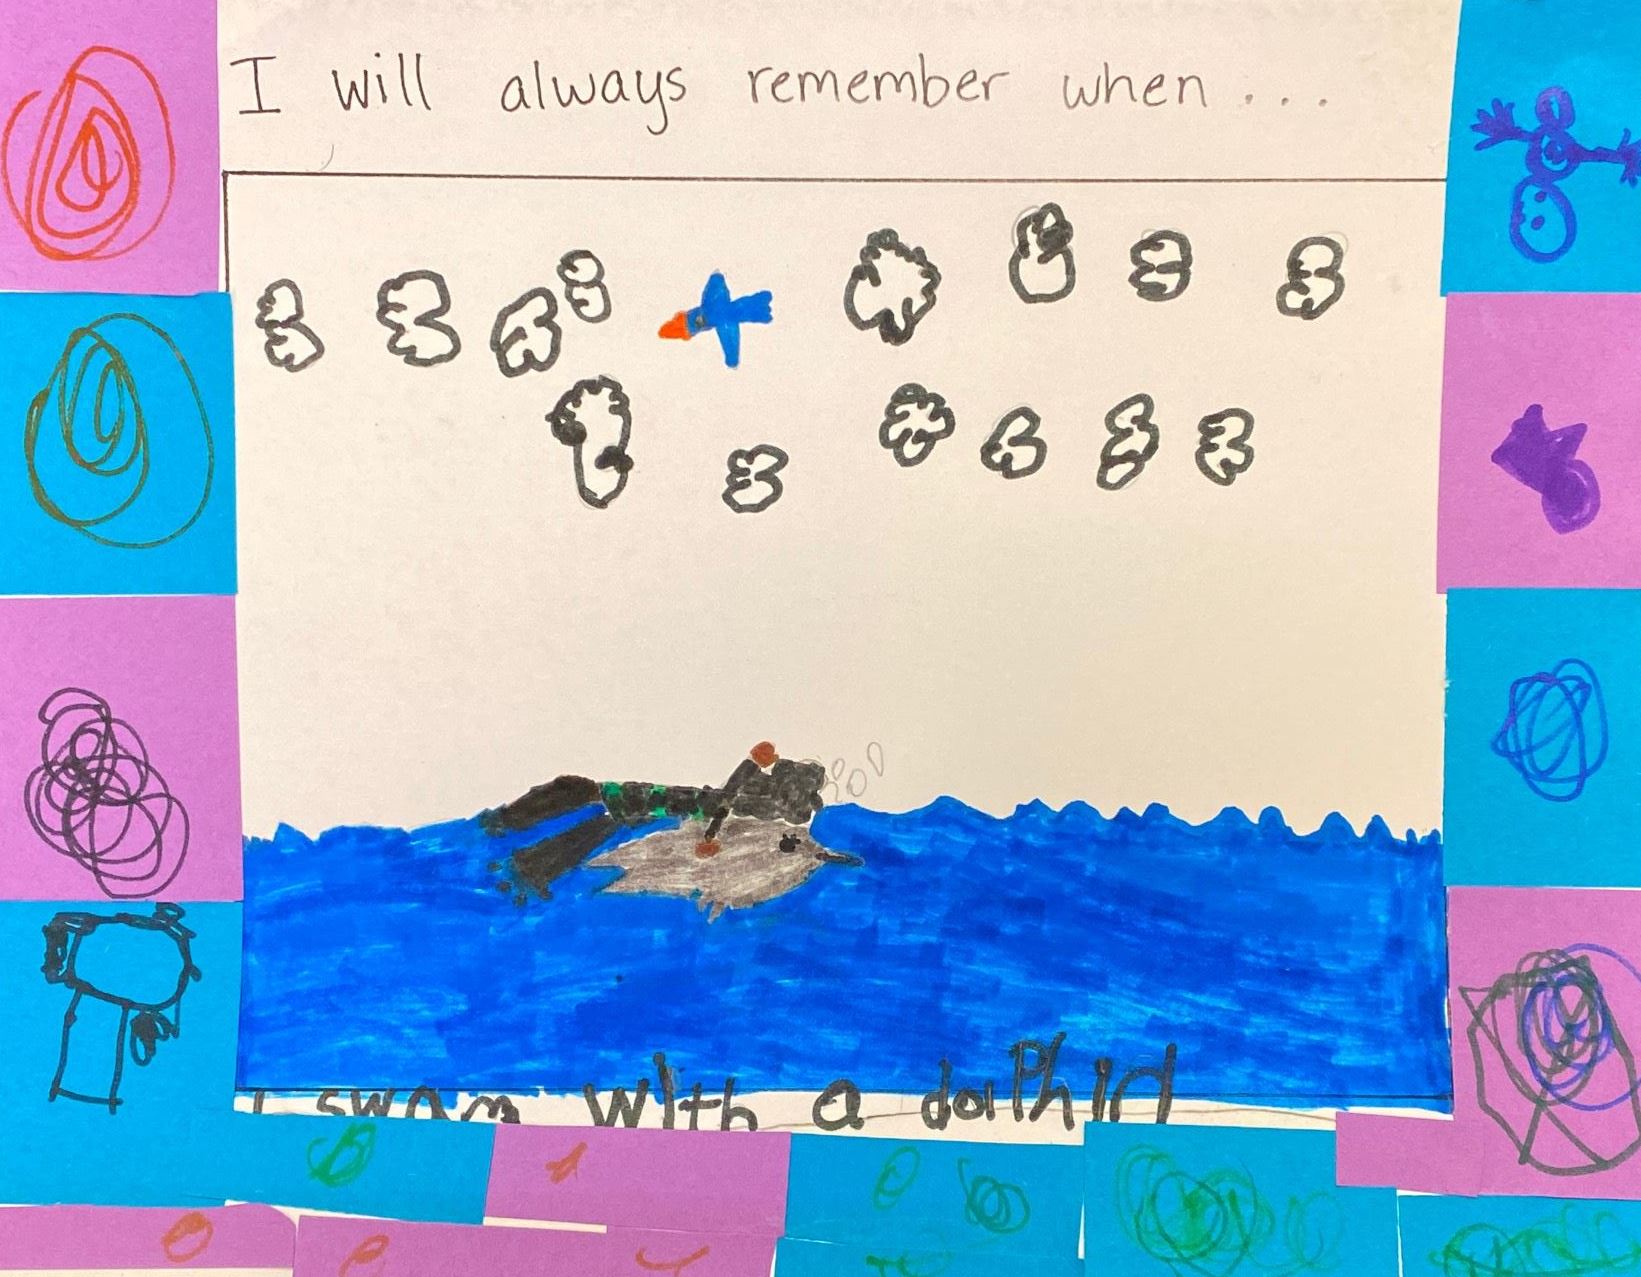 I will always remember when...
I swam with a dolphin